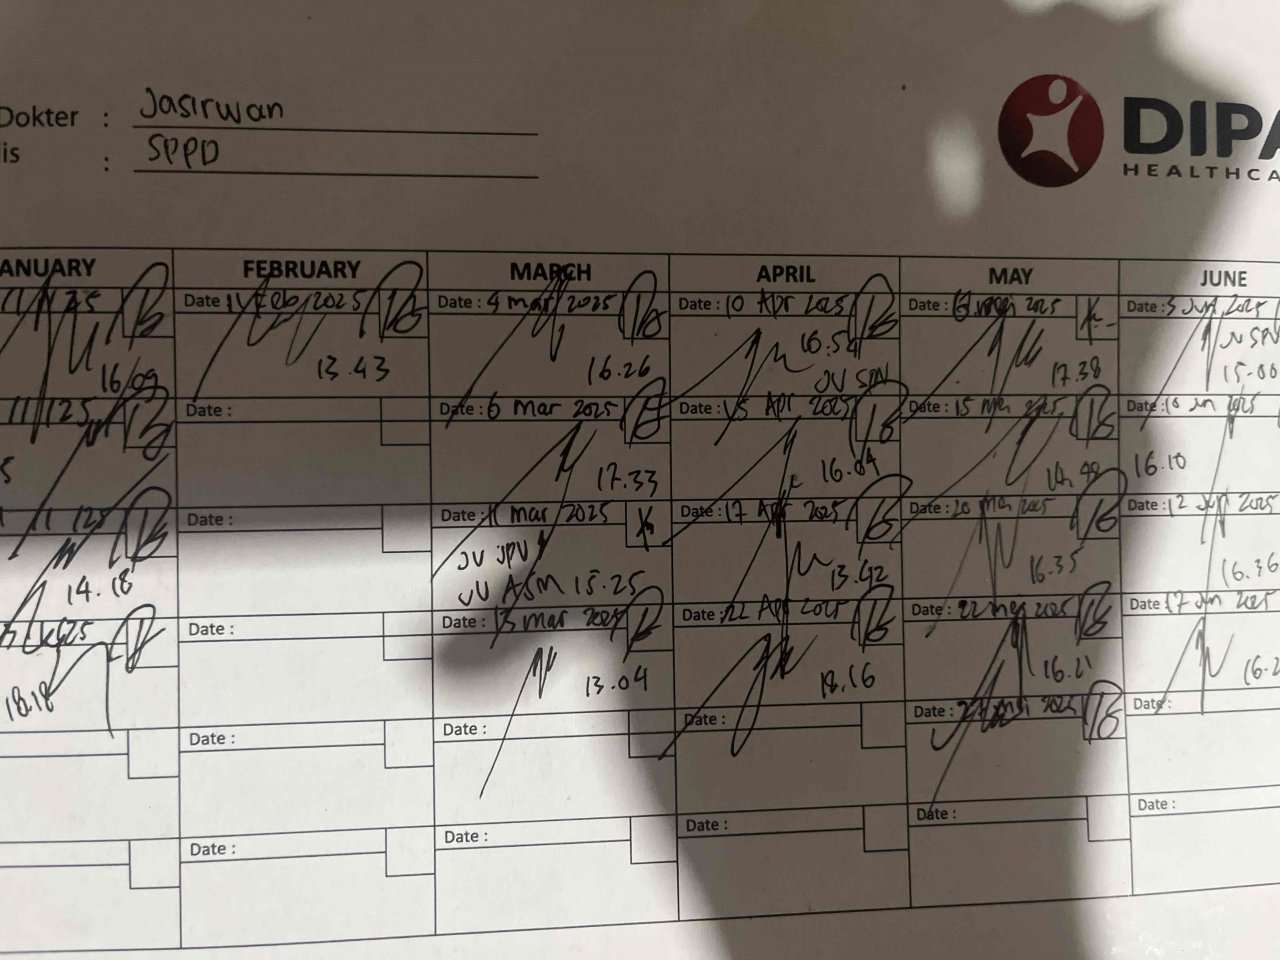 Dokter : Jasirwan
is : SPPD
DIPA
HEALTHCA
ANUARY FEBRUARY MARCH APRIL MAY JUNE
Date : Feb 2025
13.43
Date :
Date :
Date :
Date :
Date :
Date : 4 mar 2025
16.26
Date : 6 Mar 2025
17.33
Date : 11 mar 2025
JV JPV
JV ASM 15.25
Date : 13 mar 2025
13.04
Date :
Date :
Date : 10 Apr 2025
16.52
JV SPV
Date : 15 Apr 2025
16.04
Date : 17 Apr 2025
13.42
Date : 22 Apr 2025
18.16
Date :
Date :
Date : 2025
17.38
Date : 15 Mei 2025
Date : 20 Mei 2025
16.35
Date : 22 mei 2025
16.21
Date : 27 mei 2025
Date :
Date : 5 Jun 2025
JV SPV
15.00
Date : 10 Jun 2025
16.10
Date : 12 Jun 2025
16.36
Date : 17 Jun 2025
16.2
Date :
Date :
16/09
14.18
18.18